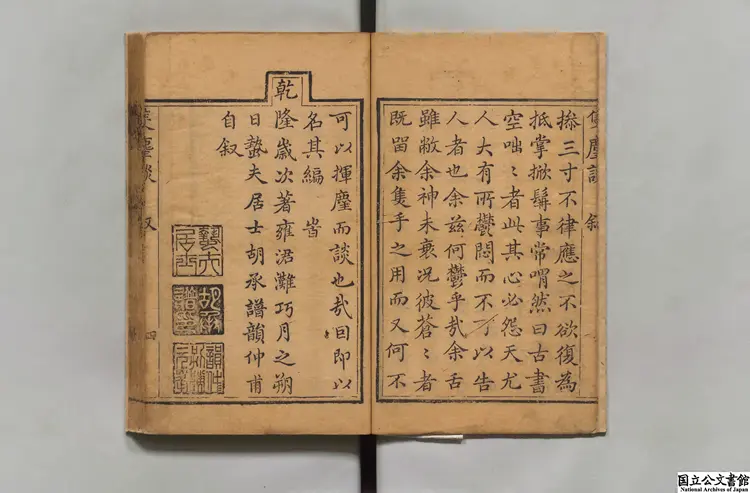 隻麈談 叙
操三寸不律應之不欲復為
抵掌掀髯事常喟然曰古書
空咄〻者此其心必怨天尤
人大有所鬱悶而不可以告
人者也余茲何鬱乎哉余舌
雖敝余神未衰况彼蒼〻者
既留余隻手之用而又何不
可以揮麈而談也哉囘即以
名其編 旹
乾隆歲次著雍涒灘巧月之朔
日蟄夫居士胡承譜韻仲甫
自叙
蟄夫居士
胡承譜印
隻麈談 叙 四
国立公文書館
National Archives of Japan